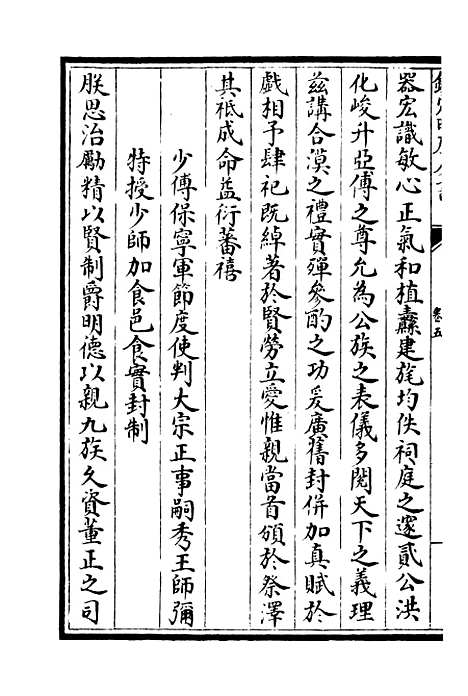 器宏識敏心正氣和植纛建旄均佚祠庭之邃貳公洪
化峻升亞傅之尊允為公族之表儀多閱天下之義理
兹講合漠之禮實殫參酌之功爰廣舊封併加真賦於
戲相予肆祀既綽著於賢勞立愛惟親當首頒於祭澤
其祗成命益衍蕃禧
少傅保寧軍節度使判大宗正事嗣秀王師彌
特授少師加食邑食實封制
朕思治勵精以賢制爵明德以親九族久資董正之司
卷五